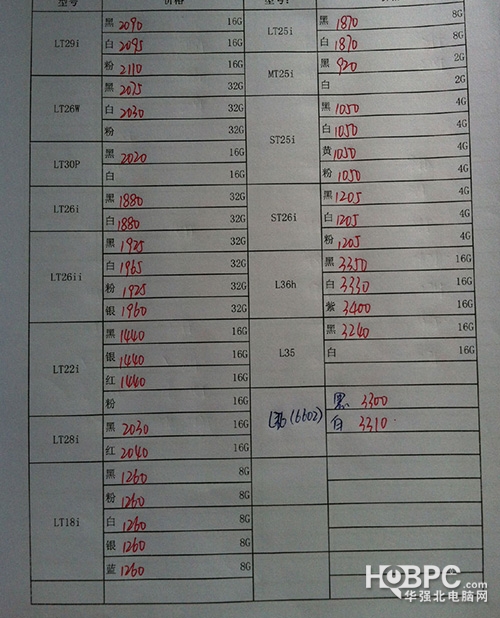 型号 价格 型号:
LT29i 黑 2090 16G
白 2095 16G
粉 2110 16G
LT26W 黑 2075 32G
白 2030 32G
粉 32G
LT30P 黑 2020 16G
白 16G
LT26i 黑 1880 32G
白 1880 32G
LT26ii 黑 1925 32G
白 1965 32G
粉 1925 32G
银 1960 32G
LT22i 黑 1440 16G
银 1440 16G
红 1440 16G
粉 16G
LT28i 黑 2030 16G
红 2040 16G
LT18i 黑 1260 8G
粉 1260 8G
白 1260 8G
银 1260 8G
蓝 1260 8G
LT25i 黑 1870 8G
白 1870 8G
MT25i 黑 920 2G
白 2G
ST25i 黑 1050 4G
白 1050 4G
黄 1050 4G
粉 1050 4G
ST26i 黑 1205 4G
白 1205 4G
粉 1205 4G
L36h 黑 3350 16G
白 3330 16G
紫 3400 16G
L35 黑 3240 16G
白 16G
(6602) 黑 3300
白 3310
HQBPC.com
华强北电脑网